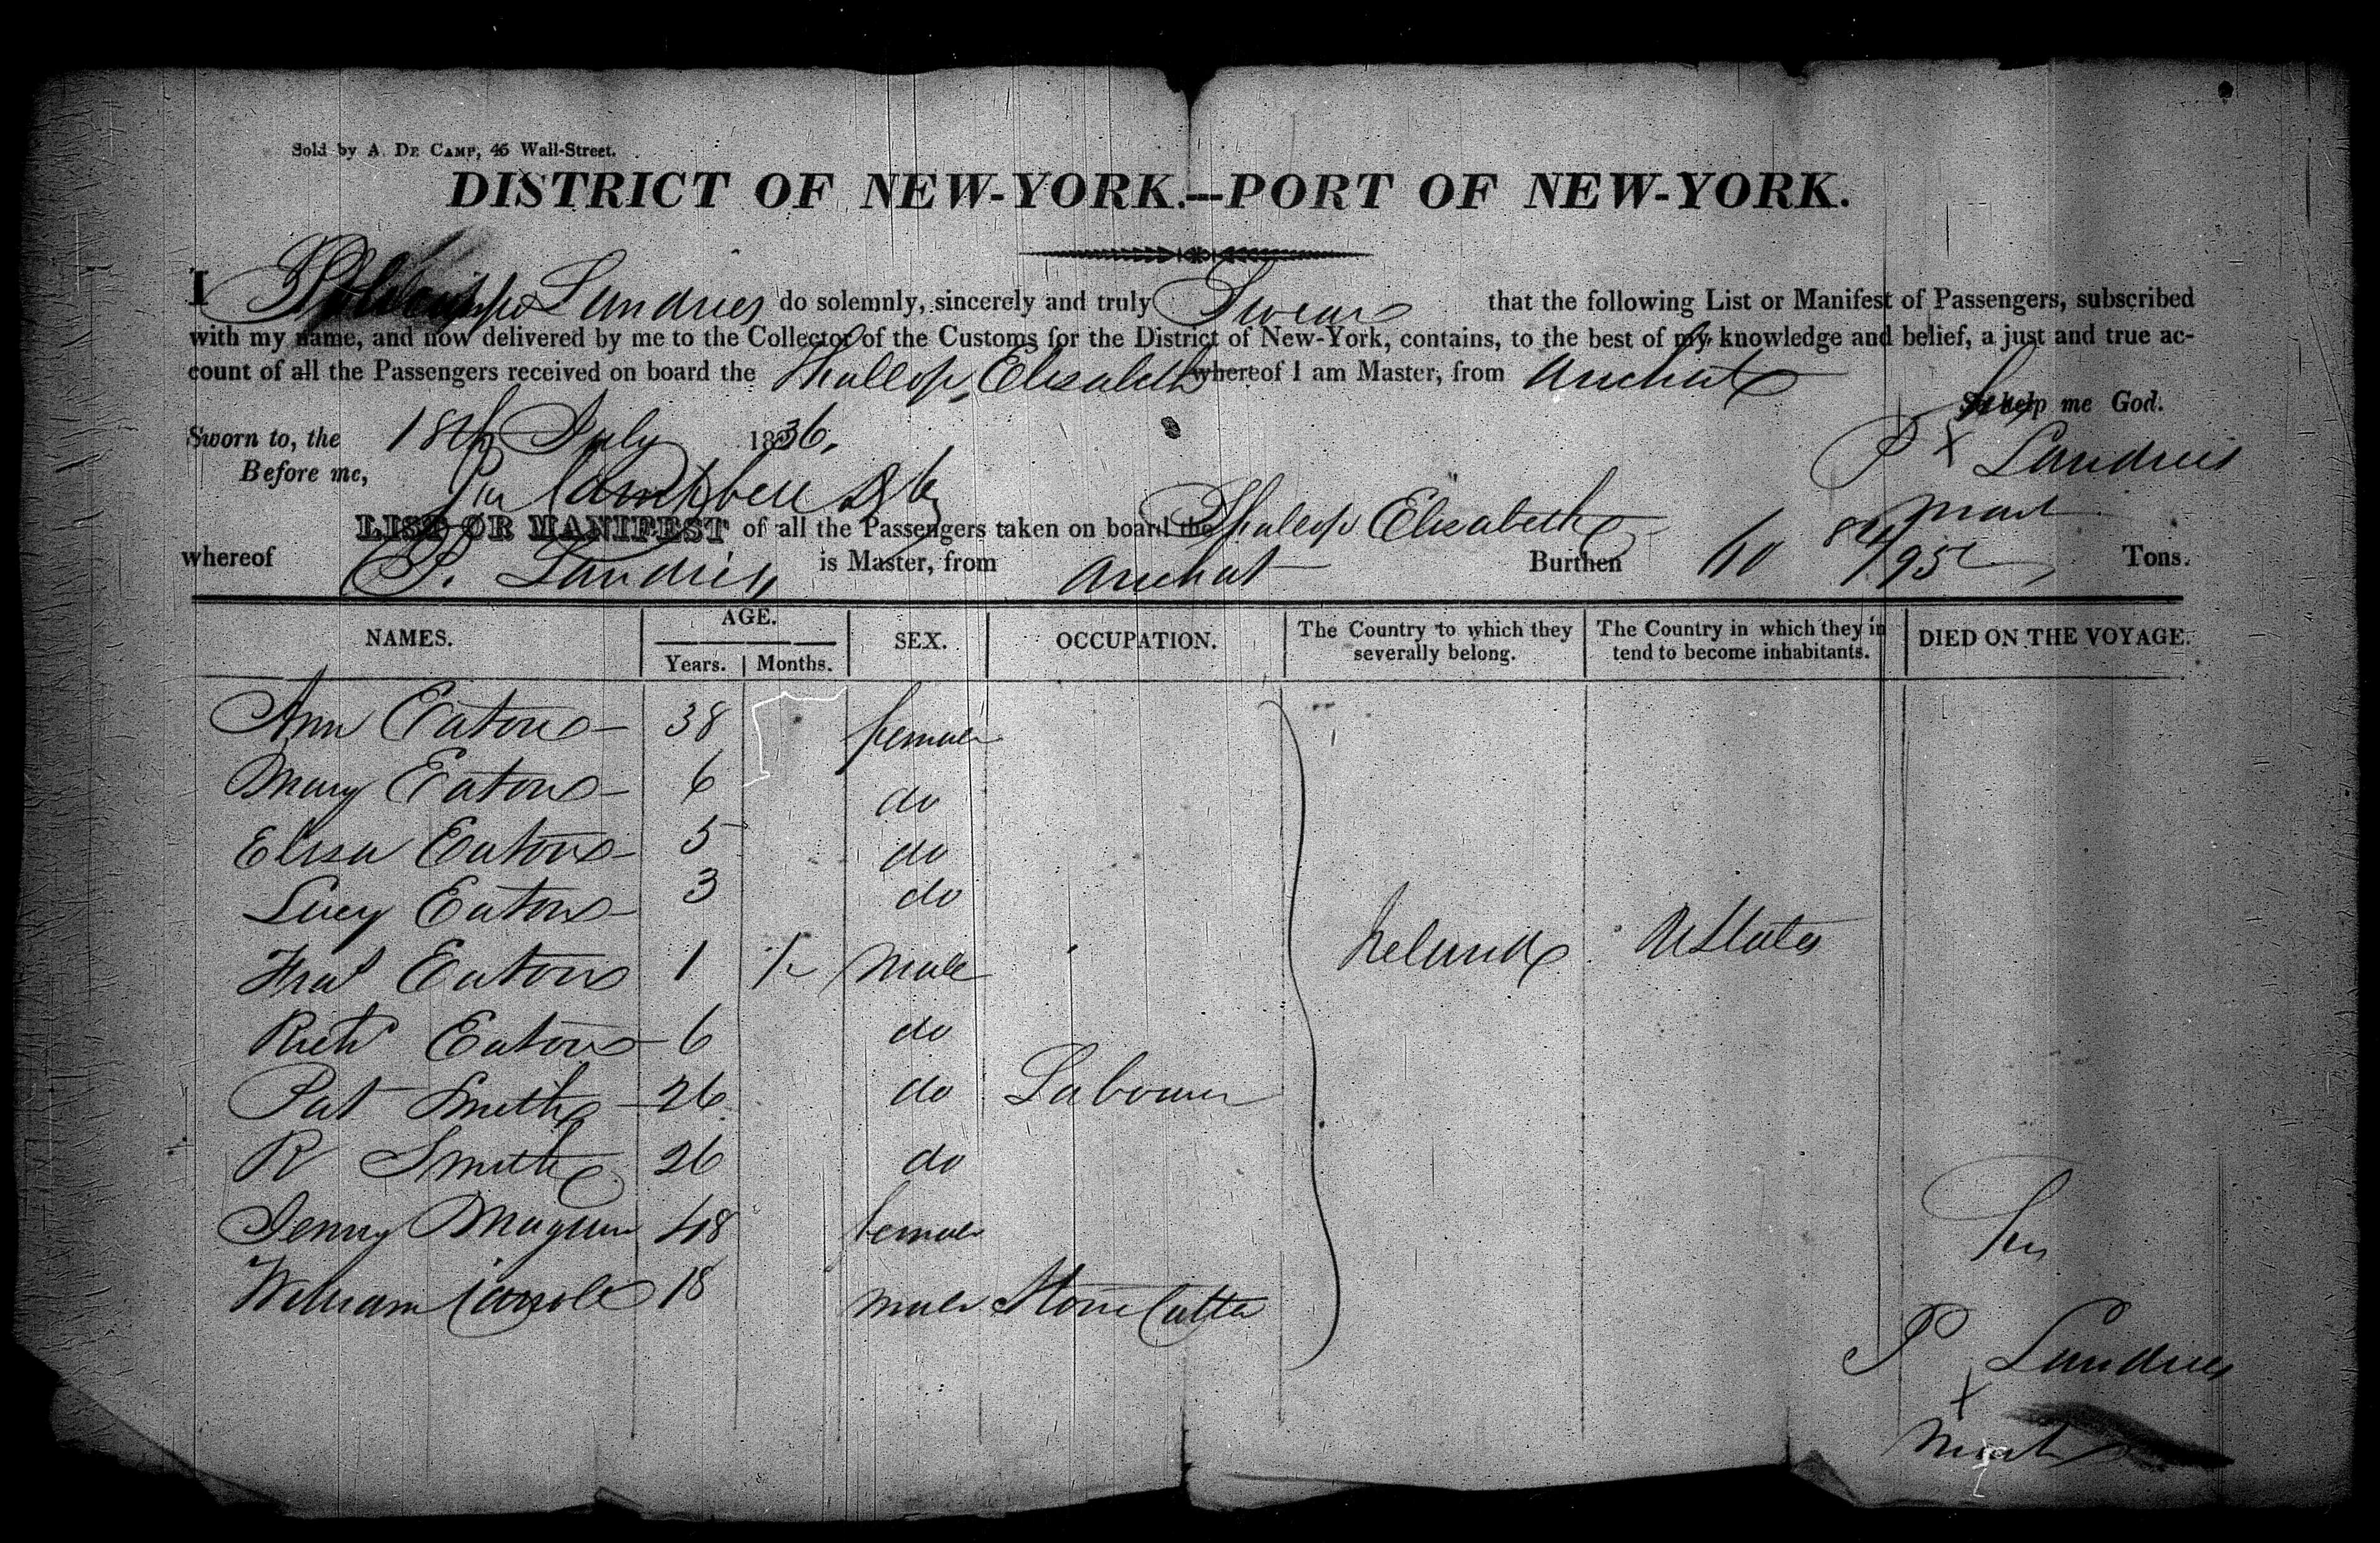 Sold by A. De Camp, 46 Wall-Street.
DISTRICT OF NEW-YORK.—PORT OF NEW-YORK.
I Landries do solemnly, sincerely and truly Swear that the following List or Manifest of Passengers, subscribed
with my name, and now delivered by me to the Collector of the Customs for the District of New-York, contains, to the best of my knowledge and belief, a just and true ac-
count of all the Passengers received on board the Shallop Elisabeth whereof I am Master, from Arichat
So help me God.
Sworn to, the 18th July 1836.
P X Landries
Before me,
mark
LIST OR MANIFEST of all the Passengers taken on board the Shallop Elisabeth
whereof P. Landries is Master, from Arichat Burthen 60 84/95 Tons.
NAMES. AGE. SEX. OCCUPATION. The Country to which they severally belong. The Country in which they intend to become inhabitants. DIED ON THE VOYAGE.
Years. Months.
Ann Eaton 38 female
Mary Eaton 6 do
Elisa Eaton 5 do
Lucy Eaton 3 do
Eaton 1 male Ireland U States
Eaton 6 do
Pat Smith 26 do Labourer
R Smith 26 do
Jenny 48 female
William 18 male Stone Cutter
his
P Landries
X
mark